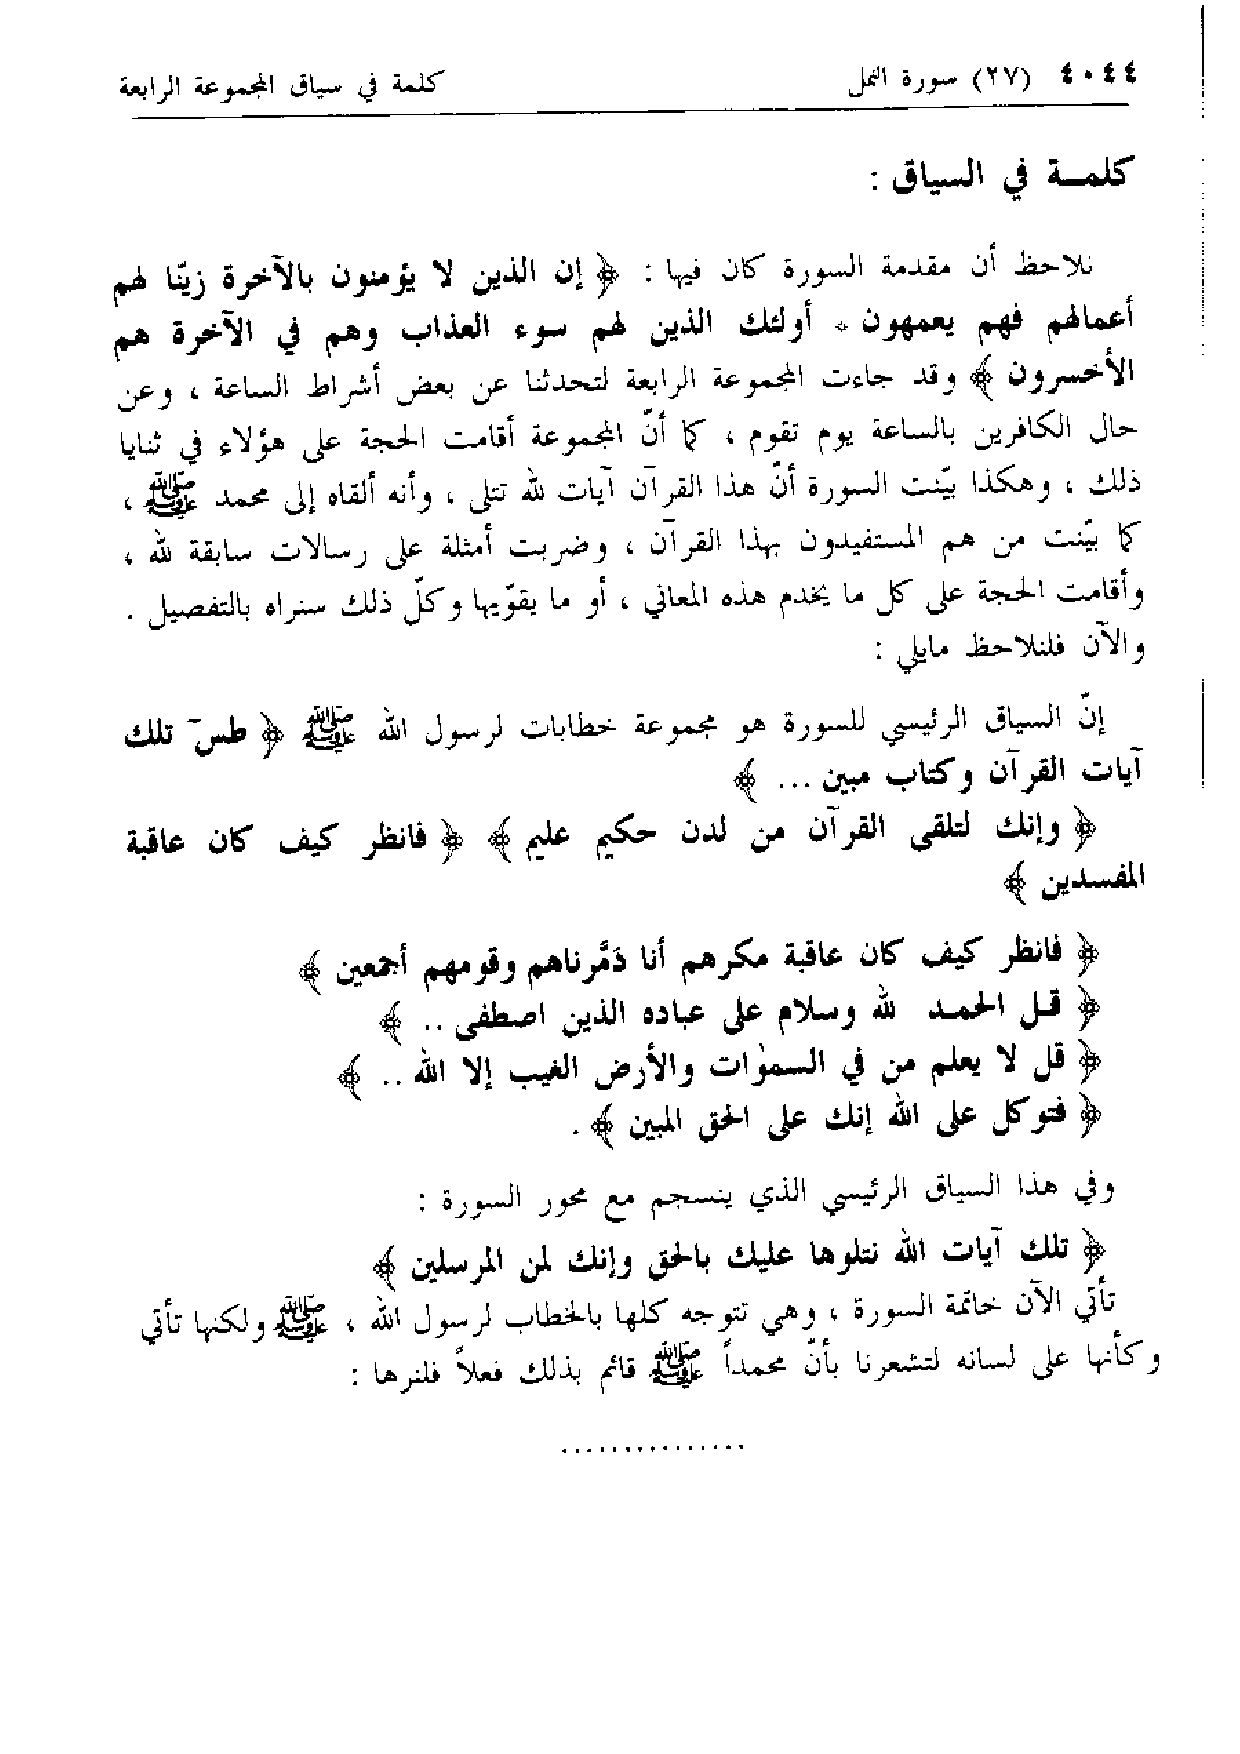 ٤٠٤٤ (٢٧) سورة النمل كلمة في سياق المجموعة الرابعة
كلمـــة في السياق :
نلاحظ أن مقدمة السورة كان فيها : ﴿ إن الذين لا يؤمنون بالآخرة زيّنا لهم
أعمالهم فهم يعمهون * أولئك الذين لهم سوء العذاب وهم في الآخرة هم
الأخسرون ﴾ وقد جاءت المجموعة الرابعة لتحدثنا عن بعض أشراط الساعة ، وعن
حال الكافرين بالساعة يوم تقوم ، كما أنّ المجموعة أقامت الحجة على هؤلاء في ثنايا
ذلك ، وهكذا بيّنت السورة أنّ هذا القرآن آيات لله تتلى ، وأنه ألقاه إلى محمد ﷺ ،
كما بيّنت من هم المستفيدون بهذا القرآن ، وضربت أمثلة على رسالات سابقة لله ،
وأقامت الحجة على كل ما يخدم هذه المعاني ، أو ما يقوّيها وكلّ ذلك سنراه بالتفصيل .
والآن فلنلاحظ مايلي :
إنّ السياق الرئيسي للسورة هو مجموعة خطابات لرسول الله ﷺ ﴿ طسٓ تلك
آيات القرآن وكتاب مبين ... ﴾
﴿ وإنك لتلقى القرآن من لدن حكيم عليم ﴾ ﴿ فانظر كيف كان عاقبة
المفسدين ﴾
﴿ فانظر كيف كان عاقبة مكرهم أنا دمّرناهم وقومهم أجمعين ﴾
﴿ قـل الحمـد لله وسلام على عباده الذين اصطفى .. ﴾
﴿ قل لا يعلم من في السمٰوات والأرض الغيب إلا الله .. ﴾
﴿ فتوكل على الله إنك على الحق المبين ﴾ .
وفي هذا السياق الرئيسي الذي ينسجم مع محور السورة :
﴿ تلك آيات الله نتلوها عليك بالحق وإنك لمن المرسلين ﴾
تأتي الآن خاتمة السورة ، وهي تتوجه كلها بالخطاب لرسول الله ، ﷺ ولكنها تأتي
وكأنها على لسانه لتشعرنا بأنّ محمداً ﷺ قائم بذلك فعلاً فلنرها :
...............